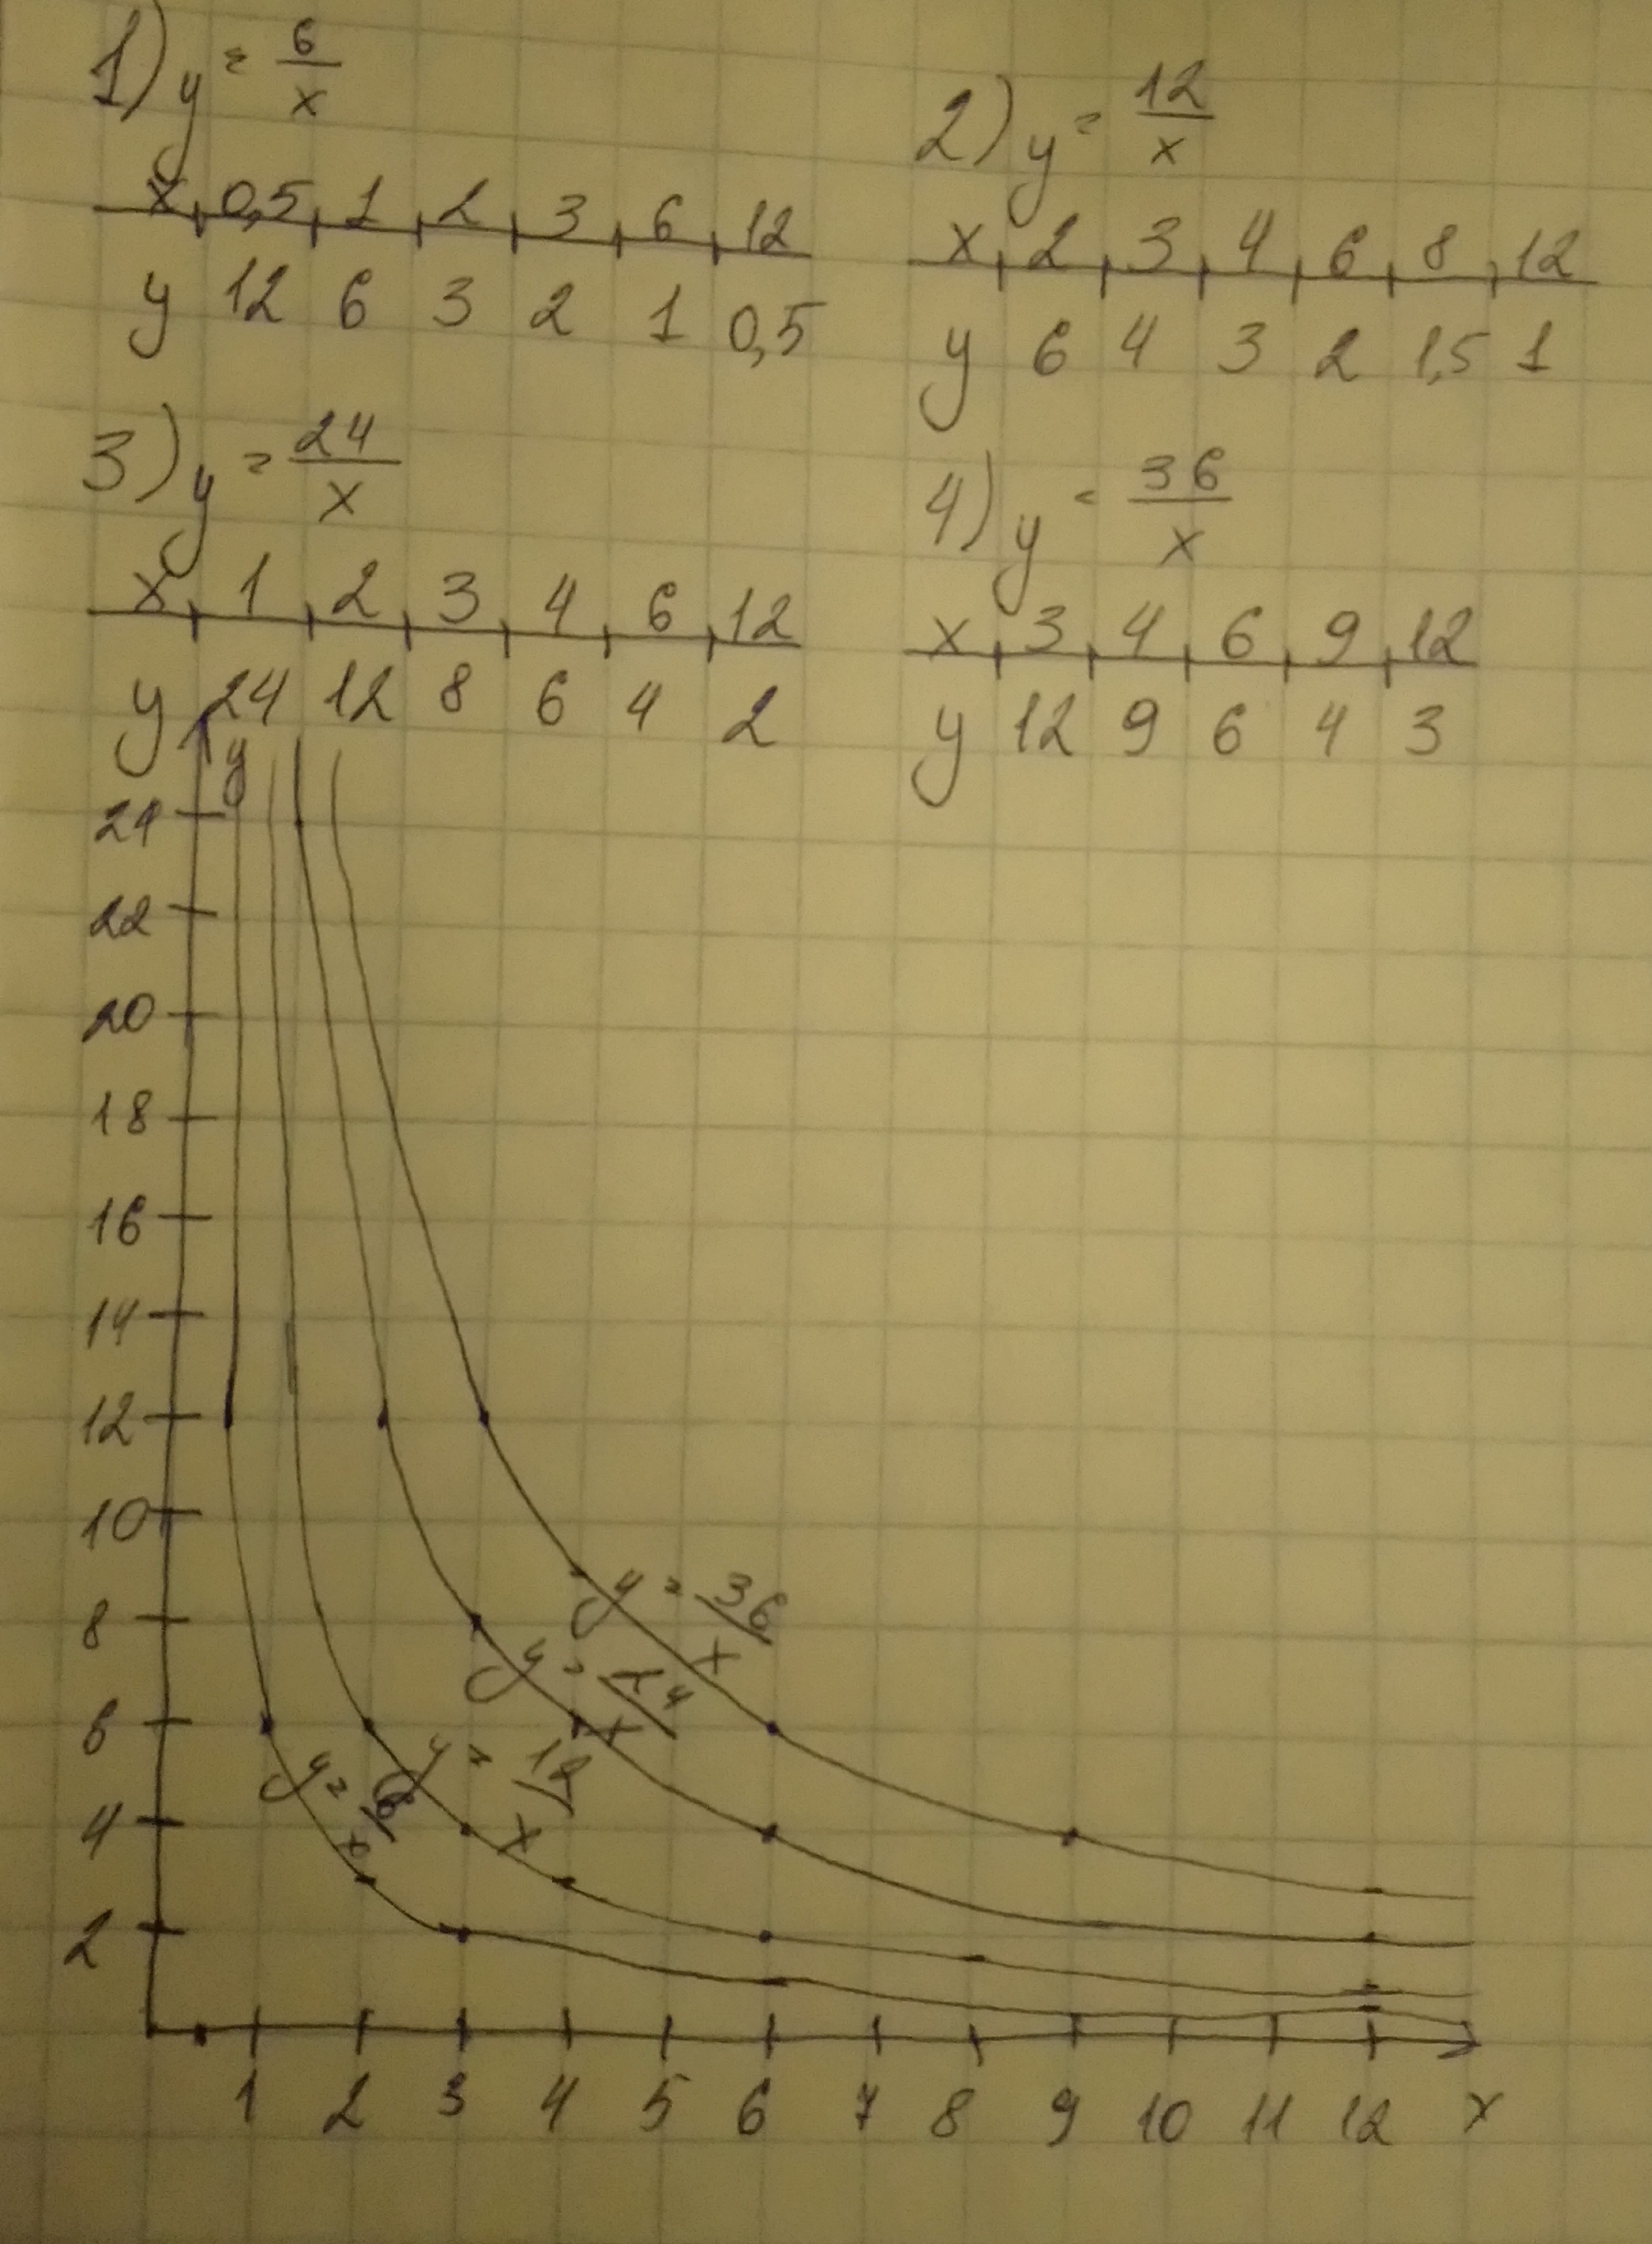 1) y = 6/x
x 0,5 1 2 3 6 12
y 12 6 3 2 1 0,5
2) y = 12/x
x 2 3 4 6 8 12
y 6 4 3 2 1,5 1
3) y = 24/x
x 1 2 3 4 6 12
y 24 12 8 6 4 2
4) y = 36/x
x 3 4 6 9 12
y 12 9 6 4 3
y
24
22
20
18
16
14
12
10
8
6
4
2
y = 36/x
y = 24/x
y = 12/x
y = 6/x
1 2 3 4 5 6 7 8 9 10 11 12 x